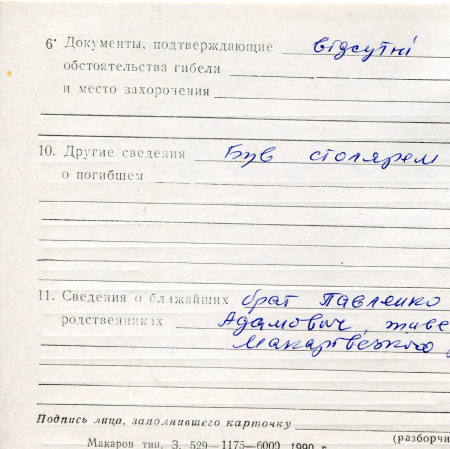 6· Документы, подтверждающие відсутні
обстоятельства гибели
и место захоронения
10. Другие сведения Був столярем
о погибшем
11. Сведения о ближайших брат Павленко
родственниках Адамович, живе
Макарівського
Подпись лица, заполнившего карточку
(разборчи
Макаров тип, З. 529—1175—6000 1990 г.